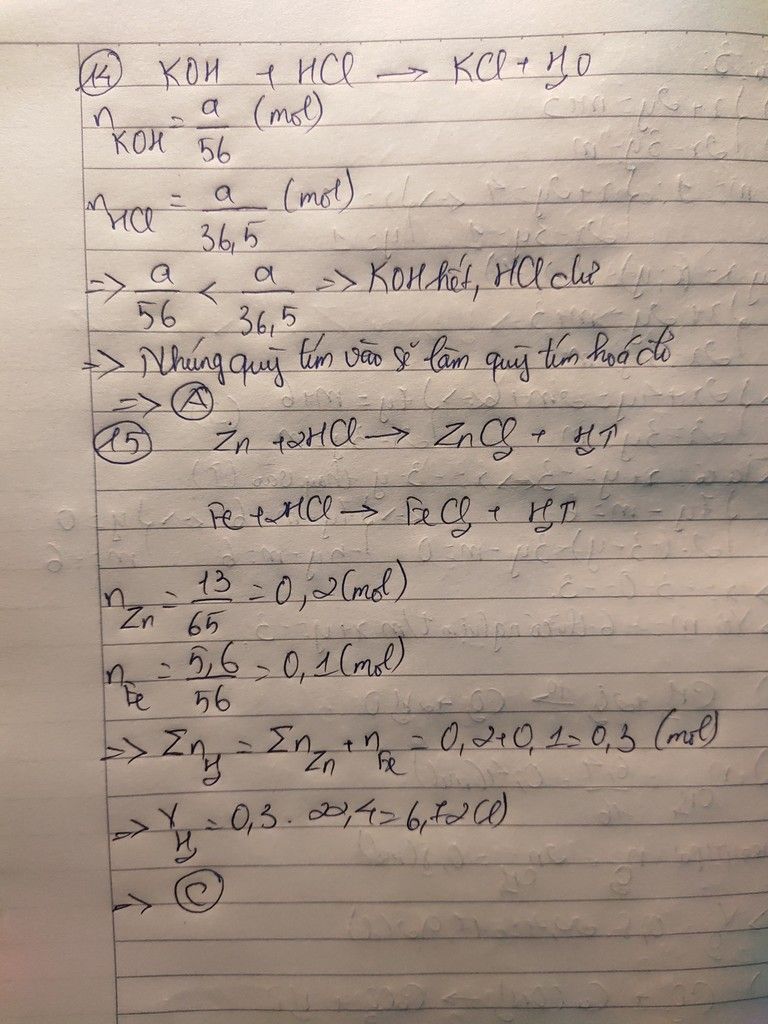 14 KOH + HCl → KCl + H₂O
n_KOH = a/56 (mol)
n_HCl = a/36,5 (mol)
=> a/56 < a/36,5 => KOH hết, HCl dư
=> Nhúng quỳ tím vào sẽ làm quỳ tím hoá đỏ
=> A
15 Zn + 2HCl → ZnCl₂ + H₂↑
Fe + 2HCl → FeCl₂ + H₂↑
n_Zn = 13/65 = 0,2 (mol)
n_Fe = 5,6/56 = 0,1 (mol)
=> Σn_H₂ = Σn_Zn + n_Fe = 0,2+0,1=0,3 (mol)
=> V_H₂ = 0,3 . 22,4 = 6,72 (l)
=> C